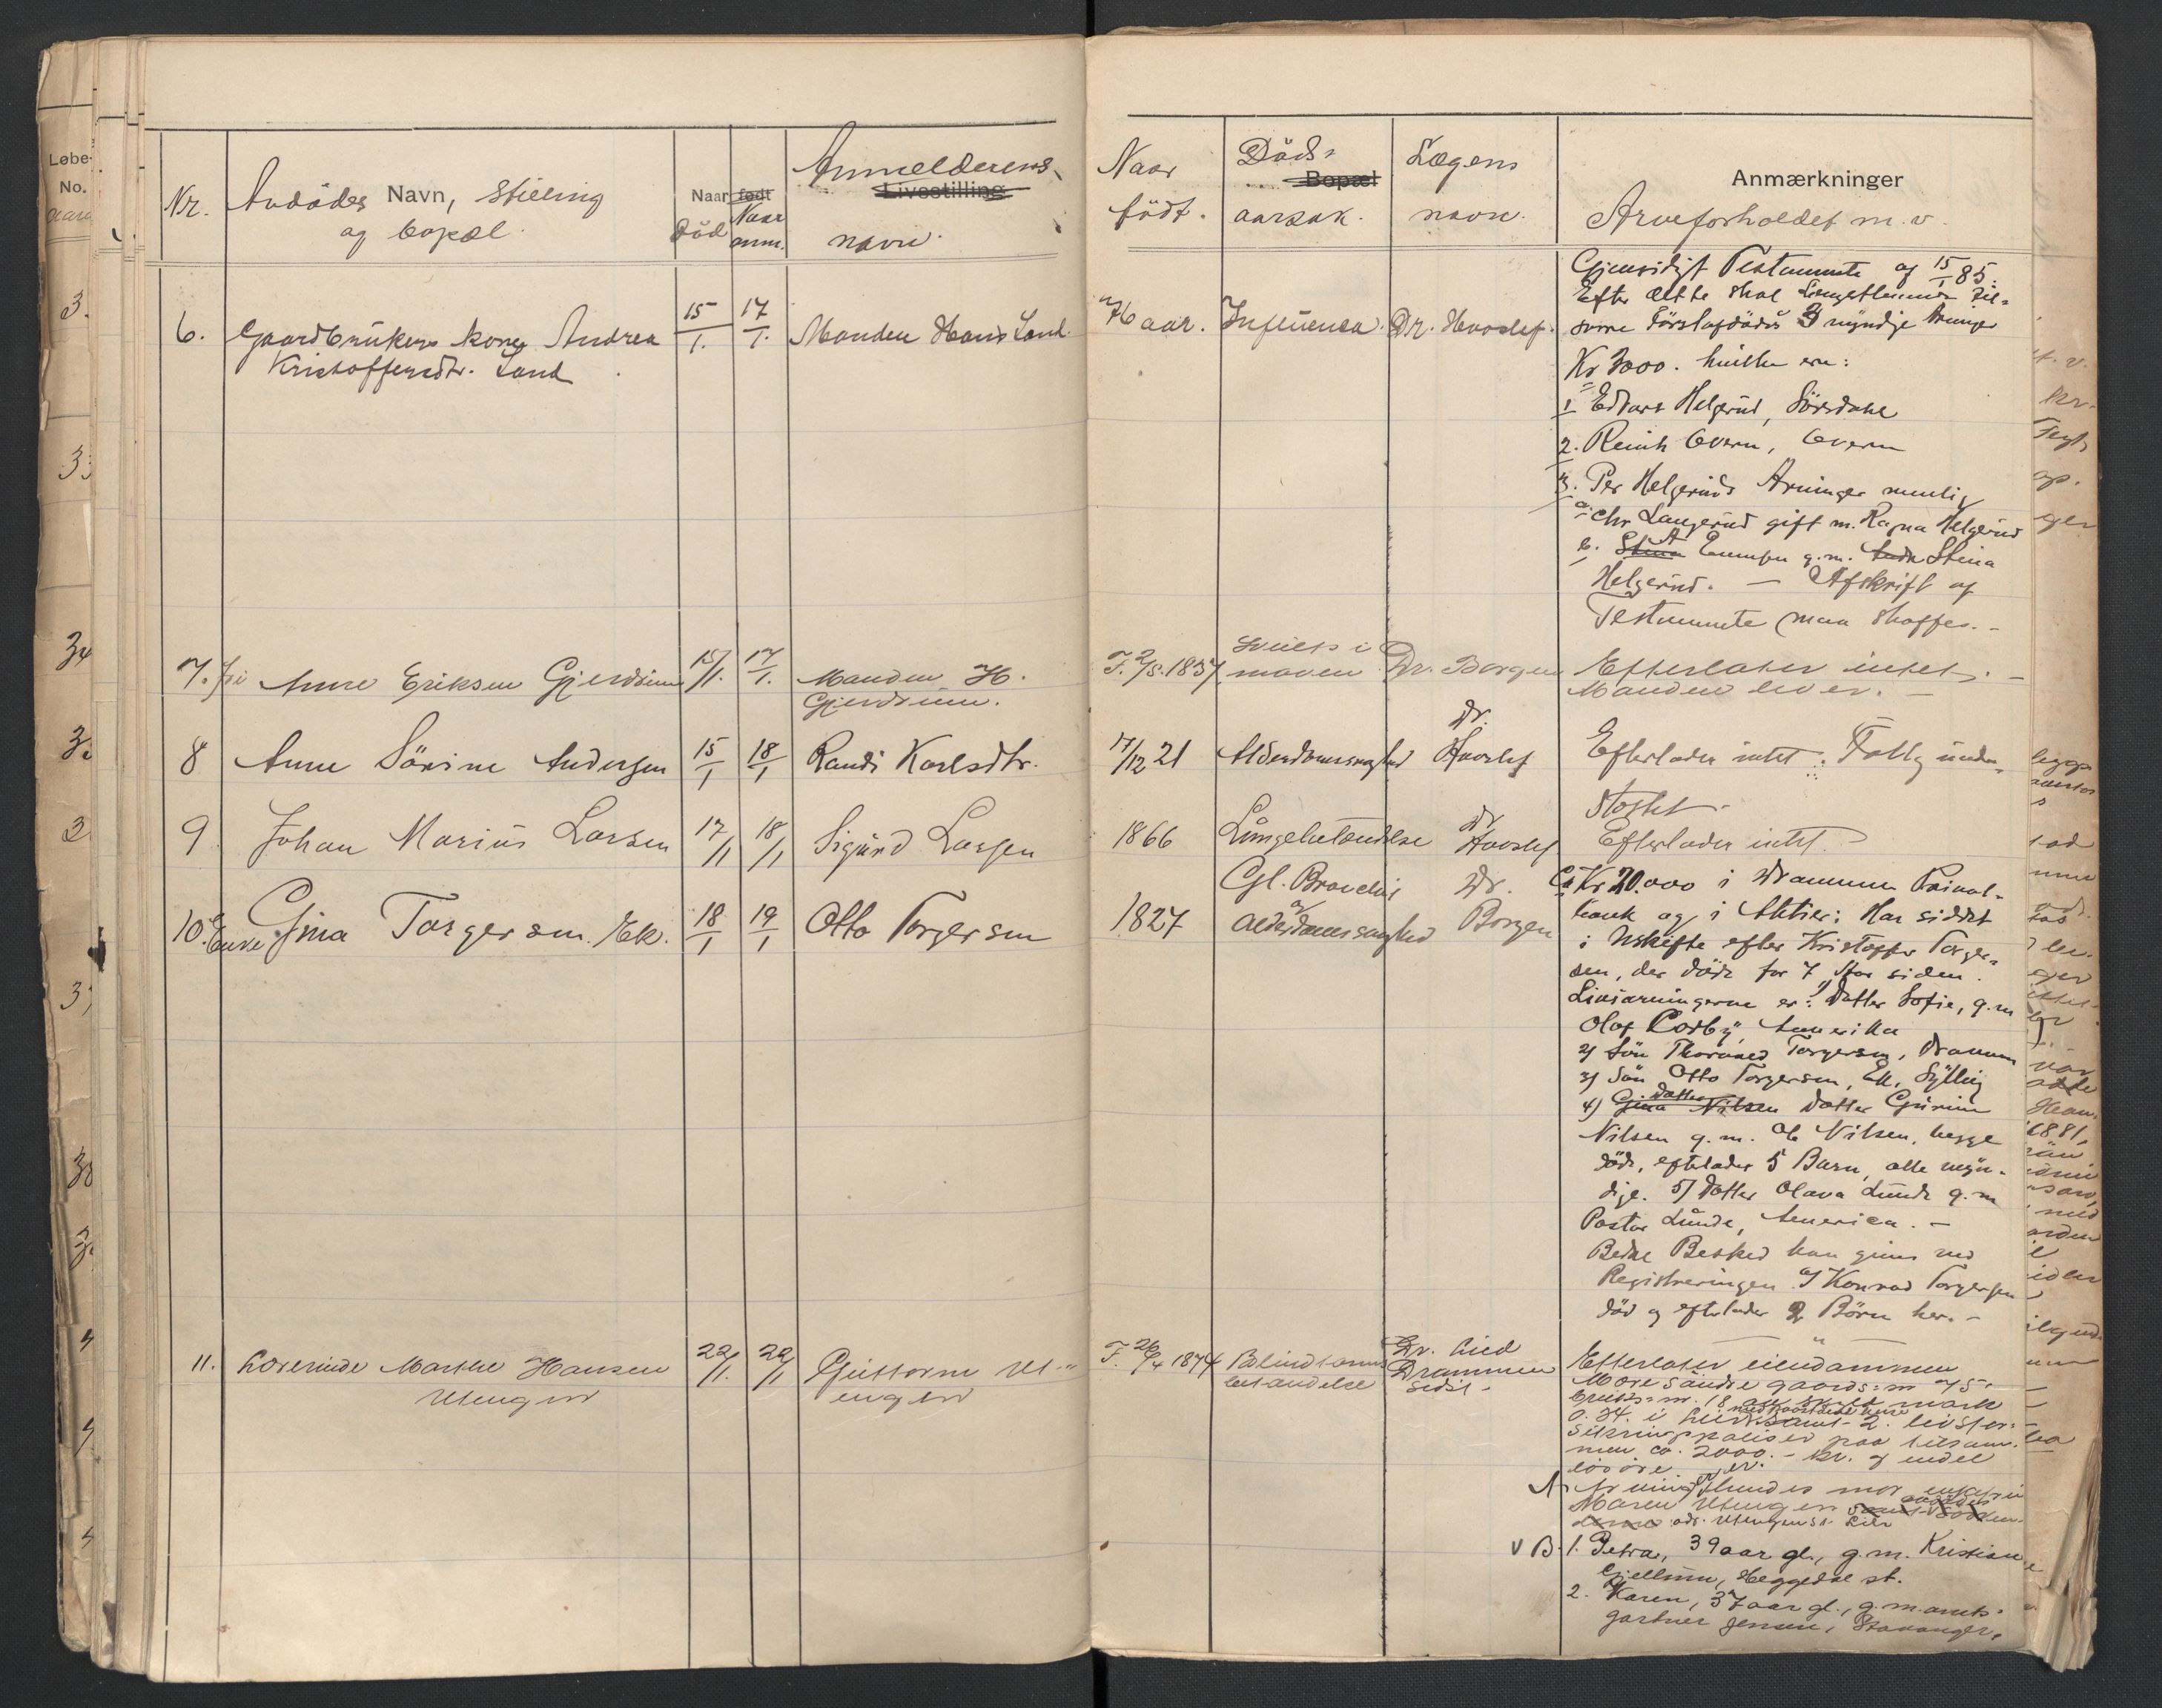 Løbe-
No.
Nr.
Avdødes Navn, Stilling
og bopæl.
Naar født
Død
Naar
anm.
Anmelderens
Livsstilling
navn.
Naar
født.
Døds-
Bopæl
aarsak.
Lægens
navn.
Anmærkninger
Arveforholdet m.v.
6.
Gaardbrukers kone Andrea
Kristoffersdtr. Land
15/1.
17/1.
Manden Hans Land.
76 aar.
Influensa.
Dr. Hovslef.
Gjensidigt Testamente af 15/1 85.
Efter dette skal Længstlevende
Førstafdødes 3 myndige Arvinger
Kr 3000. hvilke ere:
1 Edvart Helgerud, Sørsdale
2. Reinh Overn, Overn
3. Per Helgeruds Arvinger nemlig
a. Chr Laugerud gift m. Ragna Helgerud
b. Stina A Evensen g.m. Stina
Helgerud. — Afskrift af
Testamente maa skaffes. -
7.
Anne Eriksen Gjerdrum
15/1.
17/1.
Manden H.
Gjerdrum.
F. 2/8. 1857
Svulst i
maven
Dr. Borgen
Efterlater intet. -
Manden lever. -
8
Anne Sørine Andersen
15/1
18/1
Randi Karlsdtr.
17/12 21
Alderdomssvaghed
Dr.
Hovslef
Efterlader intet. Fattigunder-
støttet -
9
Johan Marius Larsen
17/1
18/1
Sigurd Larsen
1866
Lungebetændelse
Dr
Hovslef
Efterlader intet. -
10.
Enke Gina Torgersen. Ek.
18/1
19/1
Otto Torgersen
1827
Gl. Bronchit
og
Alderdomssvaghed
Dr.
Borgen
Ca Kr 20.000 i Drammens Privat-
bank og i Aktier: Har siddet
i Uskifte efter Kristoffer Torger-
sen, der døde for 7 Aar siden.
Livsarvingerne er: 1) Datter Sofie, g.m
Olaf Rodby, Amerika
2) Søn Thorvald Torgersen, Drammen
3) Søn Otto Torgersen, Ek, Sylling
4) Gina Nilsen Datter Gurine
Nilsen g.m. Ole Nilsen, begge
døde, efterlader 5 Barn, alle myn-
dige. 5) Datter Olava Lunde g.m
Pastor Lunde, Amerika. -
Bedre Besked kan gives ved
Registreringen 6) Konrad Torgersen
død og efterlader 2 Børn her. -
11.
Løserinde Marthe Hansen
Utengen
22/1.
22/1
Guttorm Ut-
engen
F. 26/4 1874
Blindtarms
betændelse
Dr. Lied
Drammen
sidst -
Efterlater eiendommen
More søndre gaards-nr 75
bruks-nr. 18 av skyld mark
0.34. i Lier samt 2 livsfor-
sikringspoliser paa tilsam-
men ca. 2000.- kr. og endel
løsøre
A. Arving er hendes mor enkefru
Maren Utengen
adr. Utengen st. Lier
v B. 1. Petra, 39 aar gl., g.m. Kristian
Gjellum, Heggedal st.
2. Karen, 37 aar gl., g.m. amts-
gartner Jensen, Stavanger.